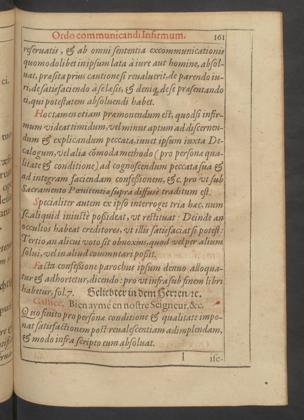 Ordo communicandi Infirmum. 161
reseruatis, & ab omni sententia excommunicationis
quomodolibet in ipsum lata à iure aut homine, absol-
uat, præsita prius cautione si
Hoc tamen etiam præmonendum est, quod si infir-
mum videat timidum, vel minus aptum ad discernen-
dum & explicandum peccata, iuuet ipsum iuxta De-
calogum, vel alia cōmoda methodo (pro persona qua-
litate & conditione) ad cognoscendum peccata sua &
ad integram faciendam confessionem, &c. pro vt sub
Sacramento Pœnitentiæ supra diffusè traditum est.
Specialiter autem ex ipso interroges tria hæc, num
se aliquid iniustè possideat, vt restituat: Deinde an
occultos habeat creditores, vt illis satisfaciat si potest:
Tertio an alicui voto sit obnoxius, quod vel per alium
solui, vel in aliud commutari possit,
Facta confessione parochus ipsum denuo alloqua-
tur & adhortetur, dicendo: pro vt infra sub finem libri
habetur, fol. 7. Geliebter in dem Herrn ꝛc.
Gallicè. Bien aymé en nostre Seigneur, &c.
Quo finito pro persona conditione & qualitate impo-
nat satisfactionem post reualescentiam adimplendam,
& modo infra scripto eum absoluat.